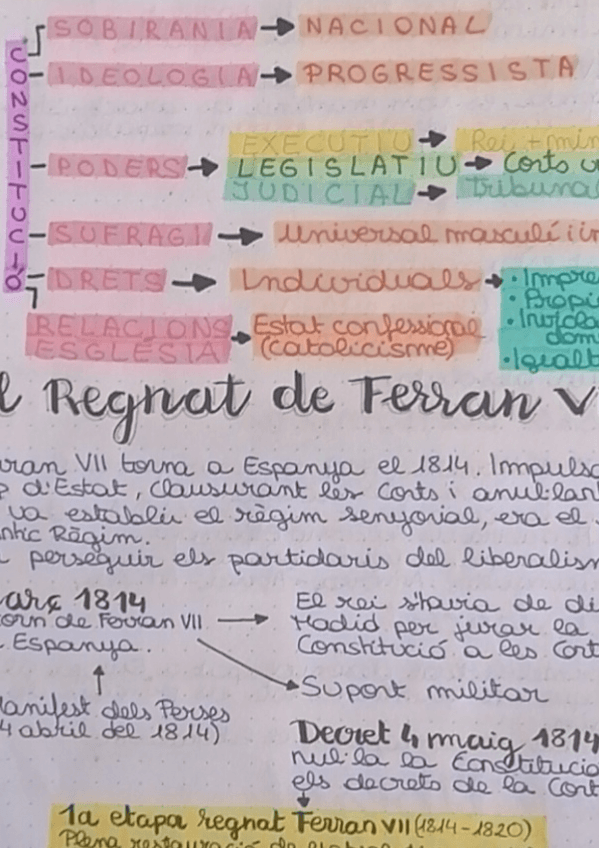 CONSTITUCIÓ
SOBIRANIA → NACIONAL
IDEOLOGIA → PROGRESSISTA
EXECUTIU → Rei + min
PODERS → LEGISLATIU → Corts u
JUDICIAL → Tribuna
SUFRAGI → Universal masculí i in
DRETS → Individuals → • Impre
• Propi
• Inviola
dom
• Igualt
RELACIONS → Estat confessional
ESGLÉSIA (catolicisme)
l Regnat de Ferran V
rran VII torna a Espanya el 1814. Impulsa
p d'Estat, clausurant les Corts i anul·lan
va establir el règim senyorial, era el
ntic Règim.
perseguir els partidaris del liberalism
arç 1814
orn de Ferran VII → El rei s'havia de di
Espanya. Madrid per jurar la
Constitució a les Cort
Suport militar
anifest dels Perses
4 abril del 1814)
Decret 4 maig 1814
nul·la la Constitucio
els decrets de la Cort
1a etapa regnat Ferran VII (1814-1820)
Plena restauració de